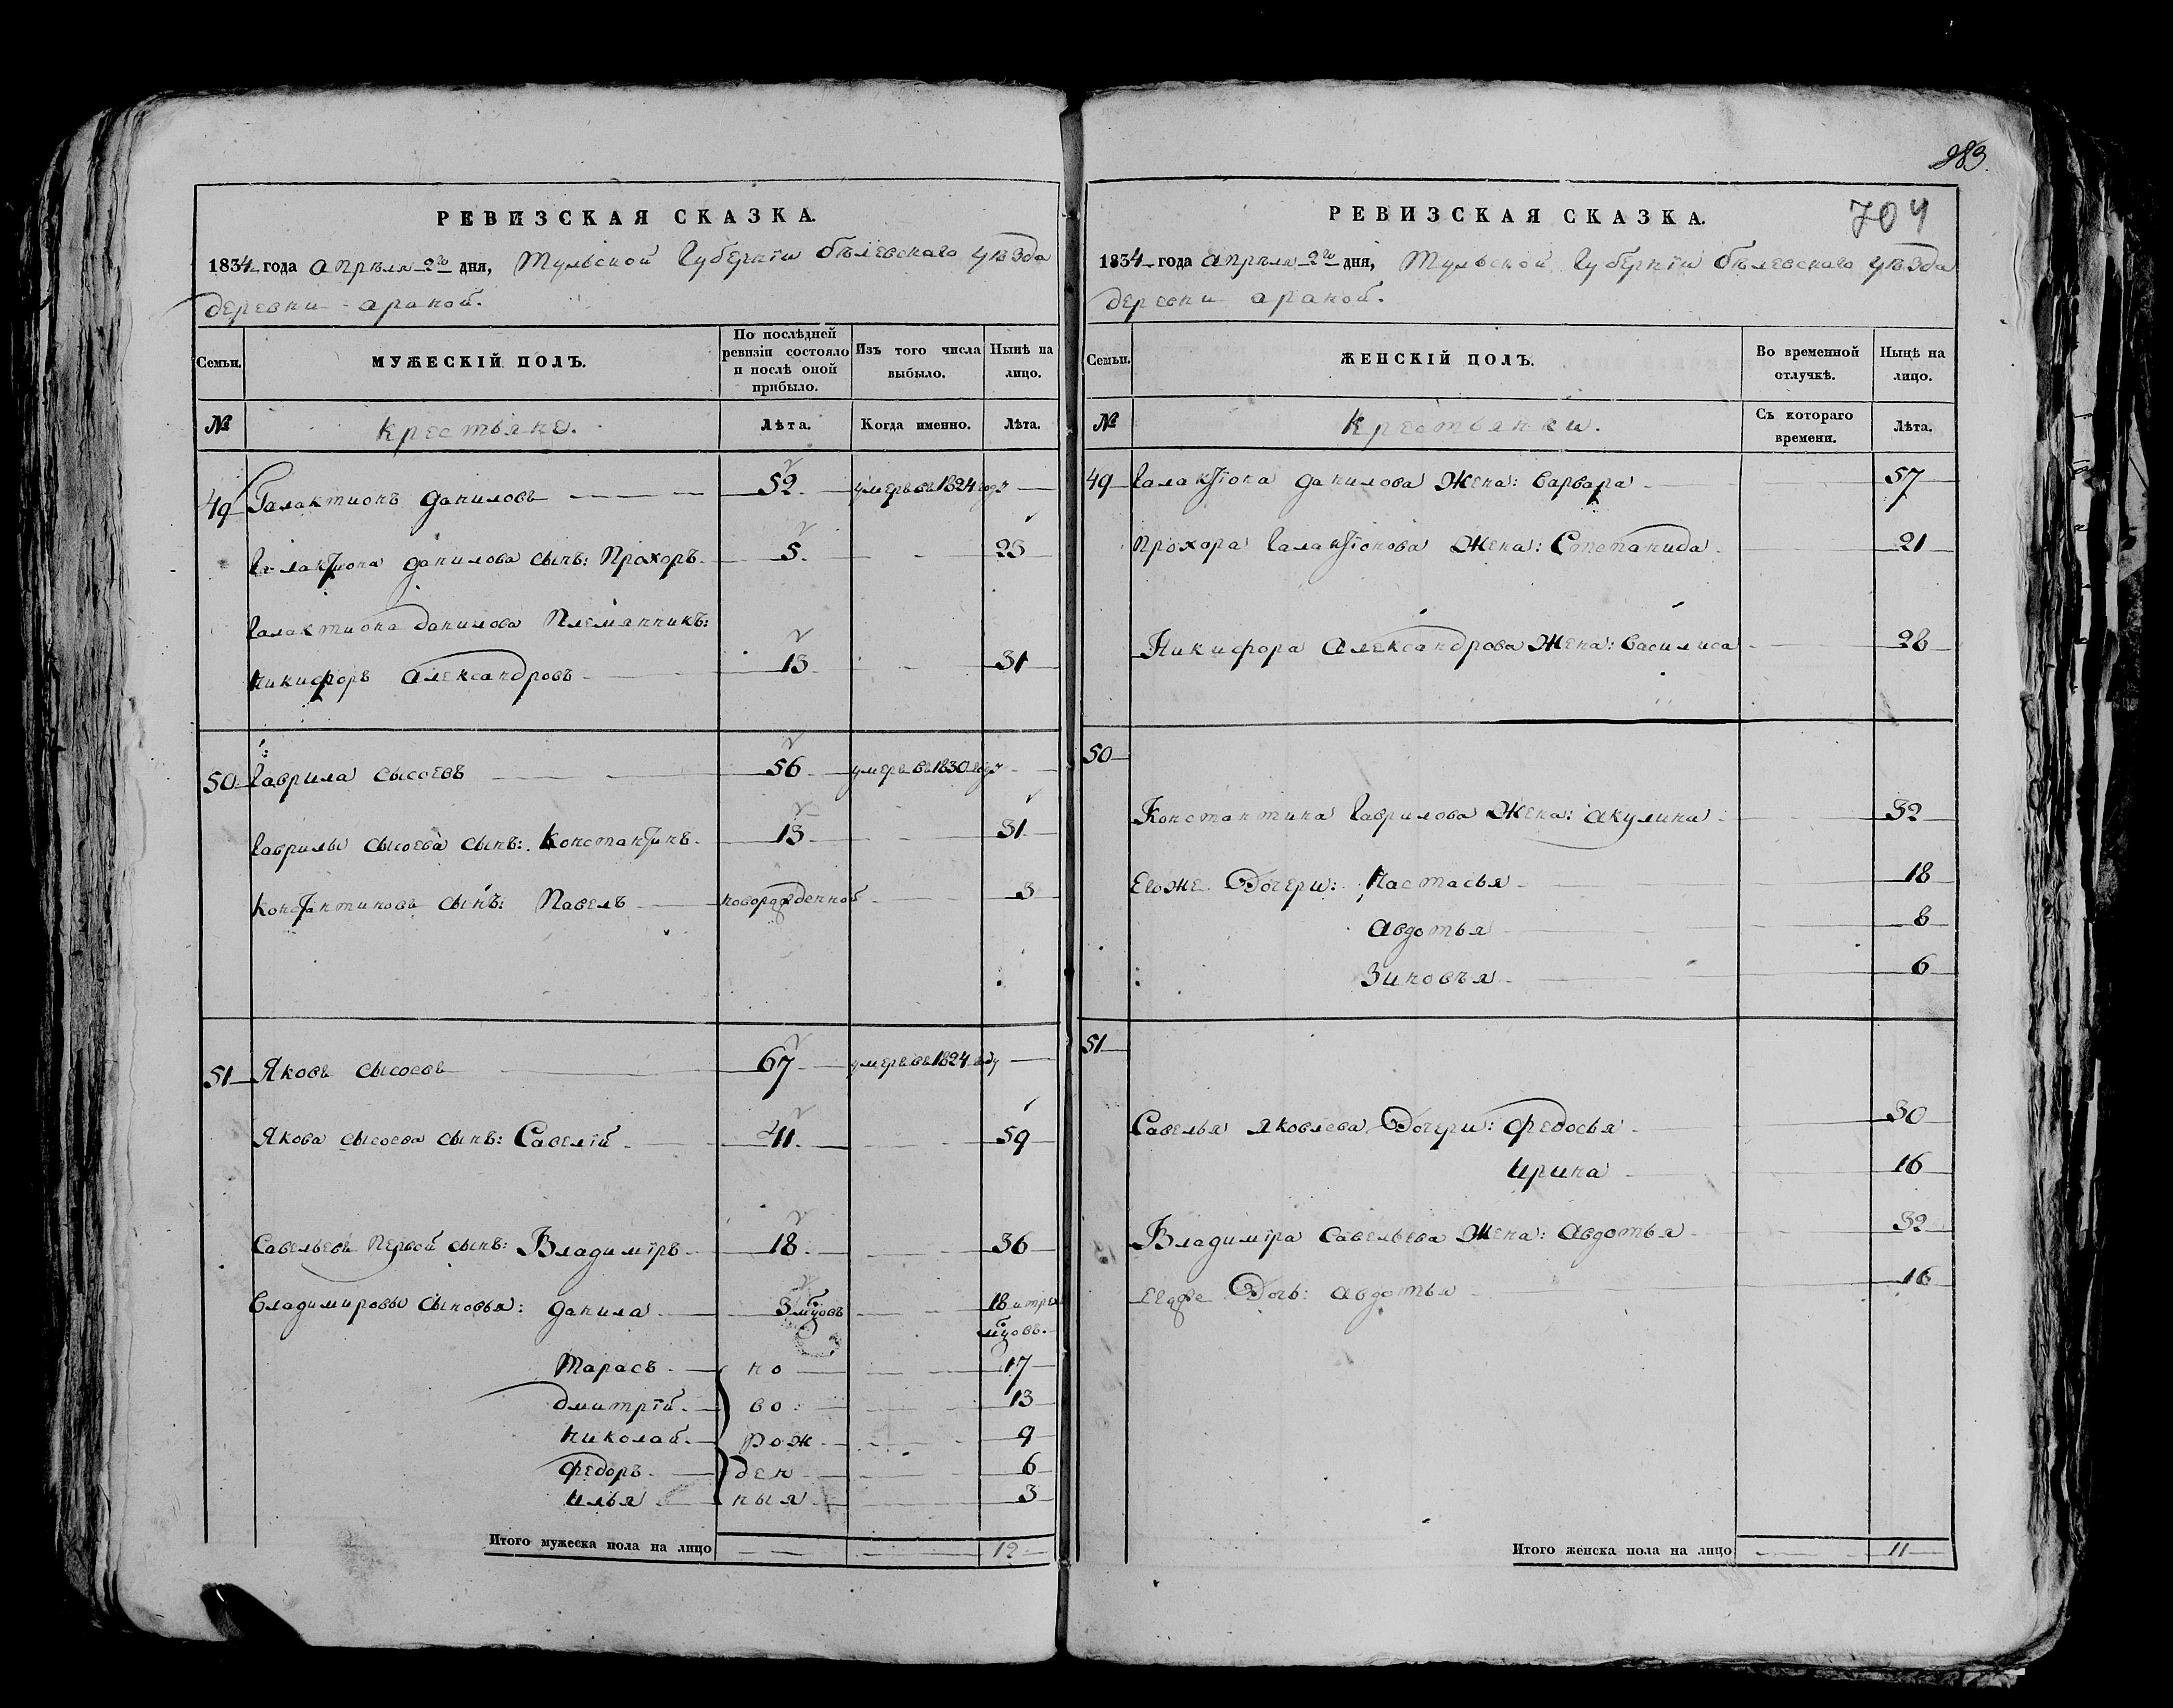 РЕВИЗСКАЯ СКАЗКА.
1834 года апреля 2го дня, Тульской Губернiи Бѣлевскаго уѣзда
деревни араной.
Семьи. МУЖЕСКIЙ ПОЛЪ. По послѣдней ревизiи состояло и послѣ оной прибыло. Изъ того числа выбыло. Нынѣ на лицо.
№ крестьяне. Лѣта. Когда именно. Лѣта.
49 Галактионъ даниловъ 52 умеръ въ 1824 году
Галактиона данилова сынъ: Прохоръ 5 23
Галактиона данилова Племянникъ:
никифоръ александровъ 13 31
50 Гаврила сысоевъ 56 умеръ въ 1830 году
Гаврилы сысоева сынъ: Константинъ 13 31
Константиновъ сынъ: Павелъ новорожденной 3
51 Яковъ сысоевъ 67 умеръ въ 1824 году
Якова сысоева сынъ: Савелiй 41 59
Савельевъ первой сынъ: Владимiръ 18 36
Владимировы сыновья: данила 3 мцовъ 18 и три
мцовъ.
Тарасъ но 17
дмитрiй во 13
николай рож 9
федоръ ден 6
илья ныя 3
Итого мужеска пола на лицо 12
983.
704
РЕВИЗСКАЯ СКАЗКА.
1834 года апреля 2го дня, Тульской Губернiи Бѣлевскаго уѣзда
деревни араной.
Семьи. ЖЕНСКIЙ ПОЛЪ. Во временной отлучкѣ. Нынѣ на лицо.
№ крестьянки. Съ котораго времени. Лѣта.
49 Галактiона данилова Жена: варвара 57
Прохора Галактiонова Жена: Степанида 21
Никифора александрова Жена: василиса 28
50
Константина Гаврилова Жена: акулина 32
Егоже Дочери: Настасья 18
авдотья 8
Зиновъя 6
51
Савелья яковлева Дочери: федосья 30
ирина 16
Владимiра савельева Жена: авдотья 32
Егоже Дочь: авдотья 16
Итого женска пола на лицо 11